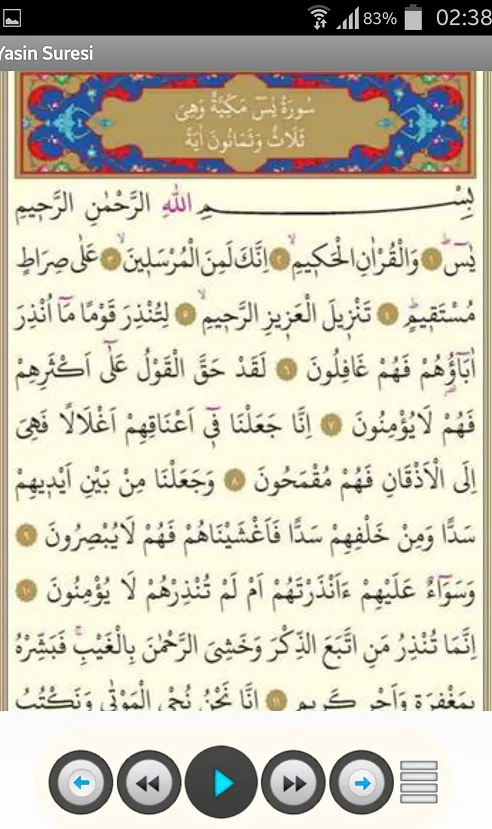 83% 02:38
Yasin Suresi
سُورَةُ يٰسٓ مَكِّيَّةٌ وَهِىَ
ثَلَاثٌ وَثَمَانُونَ اٰيَةً
بِسْمِ اللّٰهِ الرَّحْمٰنِ الرَّحٖيمِ
يٰسٓ ﴿١﴾ وَالْقُرْاٰنِ الْحَكٖيمِ ﴿٢﴾ اِنَّكَ لَمِنَ الْمُرْسَلٖينَ ﴿٣﴾ عَلٰى صِرَاطٍ
مُسْتَقٖيمٍ ﴿٤﴾ تَنْزٖيلَ الْعَزٖيزِ الرَّحٖيمِ ﴿٥﴾ لِتُنْذِرَ قَوْمًا مَٓا اُنْذِرَ
اٰبَٓاؤُهُمْ فَهُمْ غَافِلُونَ ﴿٦﴾ لَقَدْ حَقَّ الْقَوْلُ عَلٰٓى اَكْثَرِهِمْ
فَهُمْ لَا يُؤْمِنُونَ ﴿٧﴾ اِنَّا جَعَلْنَا فٖٓى اَعْنَاقِهِمْ اَغْلَالًا فَهِىَ
اِلَى الْاَذْقَانِ فَهُمْ مُقْمَحُونَ ﴿٨﴾ وَجَعَلْنَا مِنْ بَيْنِ اَيْدٖيهِمْ
سَدًّا وَمِنْ خَلْفِهِمْ سَدًّا فَاَغْشَيْنَاهُمْ فَهُمْ لَا يُبْصِرُونَ ﴿٩﴾
وَسَوَٓاءٌ عَلَيْهِمْ ءَاَنْذَرْتَهُمْ اَمْ لَمْ تُنْذِرْهُمْ لَا يُؤْمِنُونَ ﴿١٠﴾
اِنَّمَا تُنْذِرُ مَنِ اتَّبَعَ الذِّكْرَ وَخَشِىَ الرَّحْمٰنَ بِالْغَيْبِۚ فَبَشِّرْهُ
بِمَغْفِرَةٍ وَاَجْرٍ كَرٖيمٍ ﴿١١﴾ اِنَّا نَحْنُ نُحْىِ الْمَوْتٰى وَنَكْتُبُ